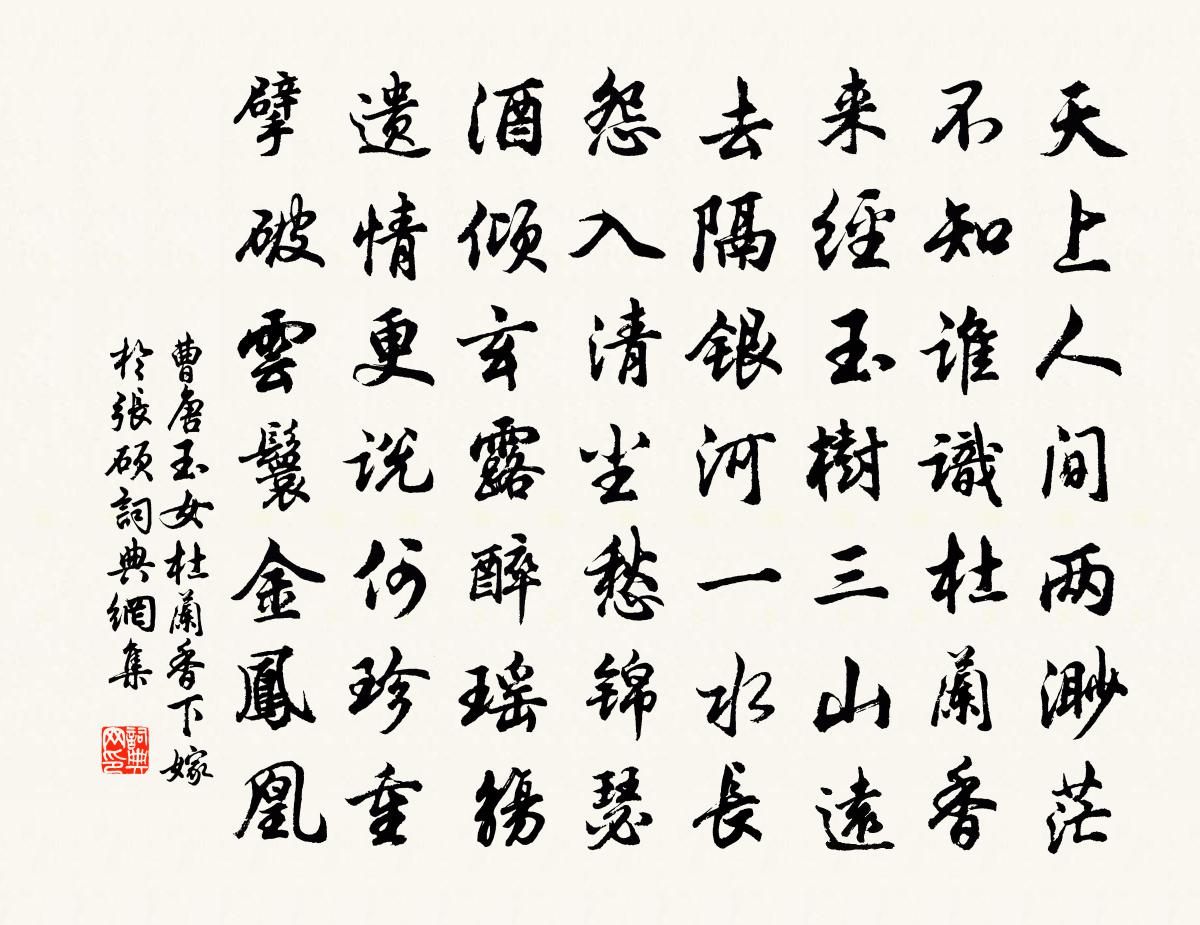 天上人间两渺茫
不知谁識杜蘭香
来經玉樹三山遠
去隔銀河一水長
怨入清尘愁锦瑟
酒倾玄露醉瑶觞
遗情更说何珍重
擘破雲鬟金鳳凰
曹唐玉女杜蘭香下嫁
於張硕詞典網集
詞典
网印